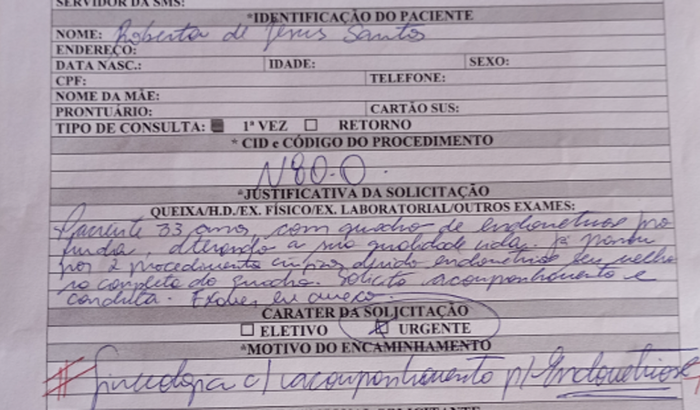 SERVIDOR DA SMS:
*IDENTIFICAÇÃO DO PACIENTE
NOME: Roberta de Jesus Santos
ENDEREÇO:
DATA NASC.: IDADE: SEXO:
CPF: TELEFONE:
NOME DA MÃE:
PRONTUÁRIO: CARTÃO SUS:
TIPO DE CONSULTA: 1ª VEZ RETORNO
* CID e CÓDIGO DO PROCEDIMENTO
N80.0
*JUSTIFICATIVA DA SOLICITAÇÃO
QUEIXA/H.D./EX. FÍSICO/EX. LABORATORIAL/OUTROS EXAMES:
Paciente 33 anos, com quadro de endometriose pro
funda, alterando a sua qualidade vida. Já passou
por 2 procedimento devido endometriose sem melho
ra completa do quadro. Solicito acompanhamento e
conduta. Exames em anexo.
CARATER DA SOLICITAÇÃO
ELETIVO URGENTE
*MOTIVO DO ENCAMINHAMENTO
# Ginecologia c/ acompanhamento p/ Endometriose